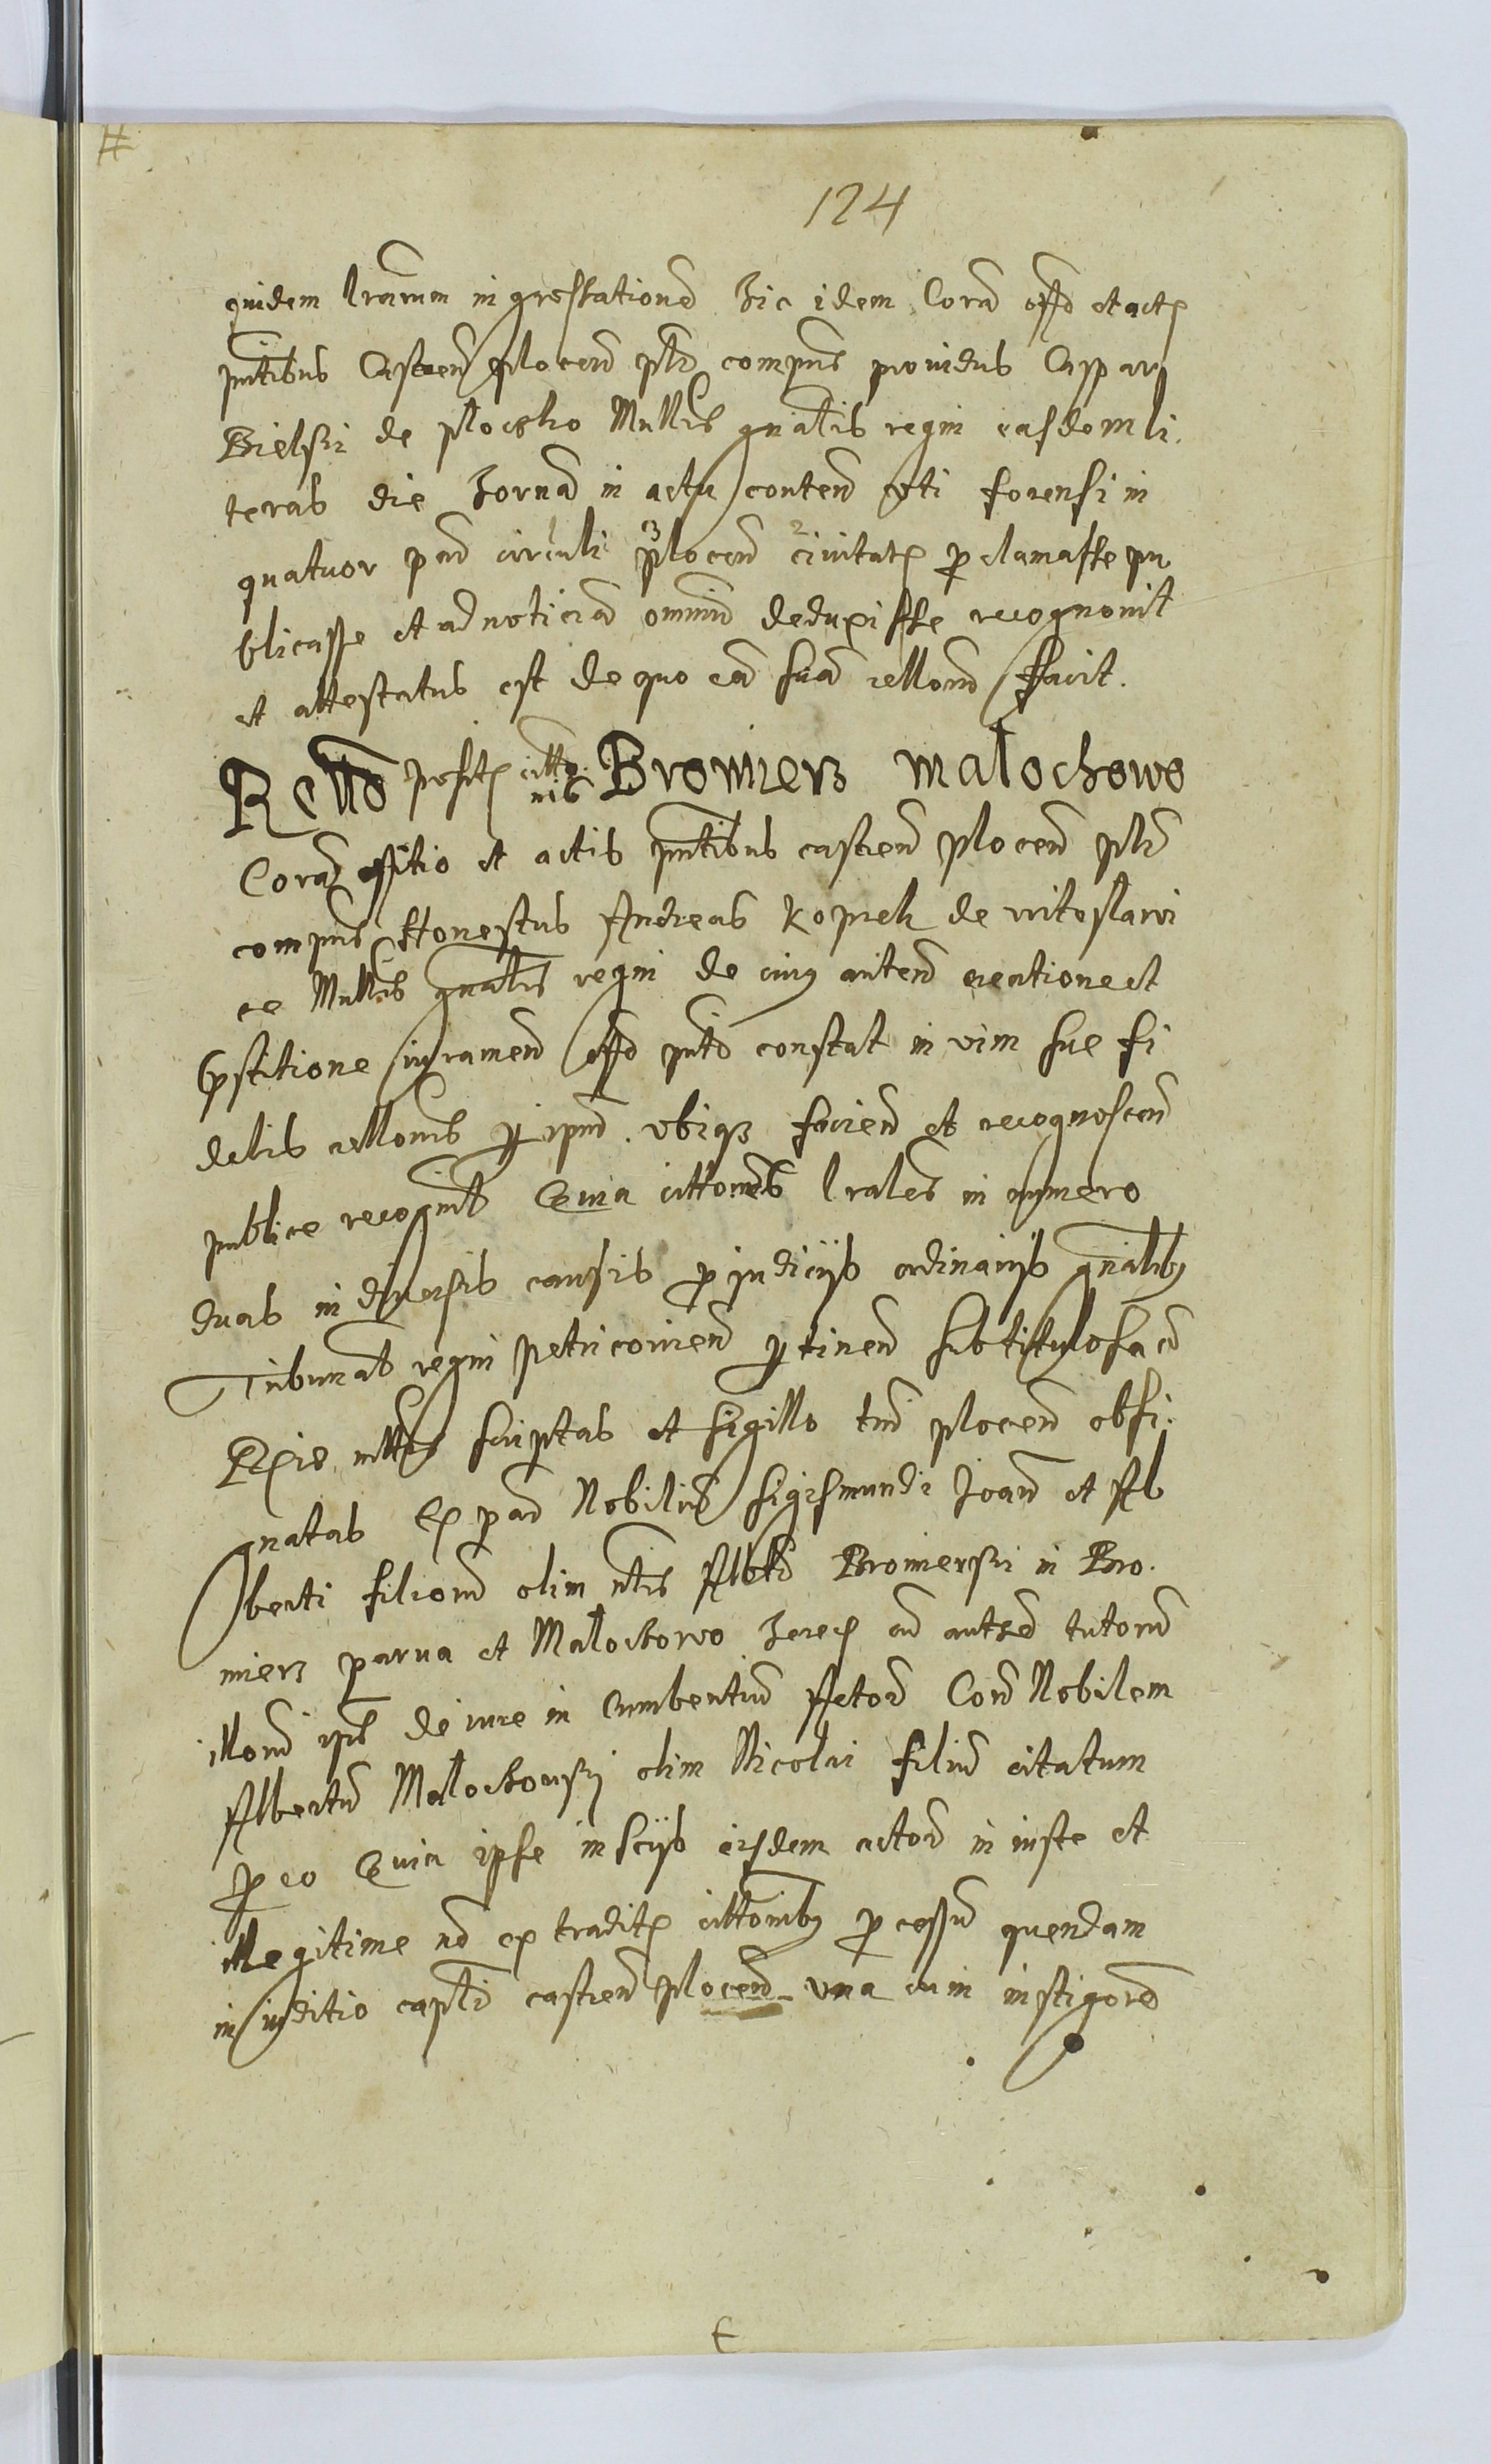 124
quidem lrarum ingrossationem Hic idem Coram offo et actis
pntibus Castren plocen plr compns providus Caspar
Bielsii de plocsko Mnlis gnalis regni easdem li.
teras die horna in actu conten vti forensi in
quatuor par circuli plocen civitatis proclamasse pu
blicasse et ad noticiam omnium deduxisse recognovit
et attestatus est de quo eam suam rellonem facit.
Rello positis citto nis Bromierz małochowo
Coram offitio et actis pntibus castren plocen plr
compns Honestus Andreas Kopiek de witoslawi
ce Mnlis gnalis regni de cuius autem creatione et
prstitione juramen offo pnti constat in vim sue fi
delis rellonis per ipm vbiqz facien et recognoscen
publice recognit Quia cittones lrales in numero
duas in diversis causis pro judicijs ordinarijs gnalibus
Tribunalis regni petricovien pertinen sub titulo sacr
Rgie mttis scriptas et sigillo trri plocen obsi.
gnatas Ex par Nobilium sigismundi Joan et Al
berti filiorum olim nlis Alberti Bromierski in Bro.
mierz parva et Malochowo hered cum auth tutorum
illorum ipis de iure incumbentium Actorum Contra Nobilem
Albertum Malochowskij olim Nicolai filium citatum
pro eo Quia ipse inscijs eisdem actor in iuste et
illegitime non ex traditis cittonibus processum quendam
in juditio capli castren plocen vna cum instigore